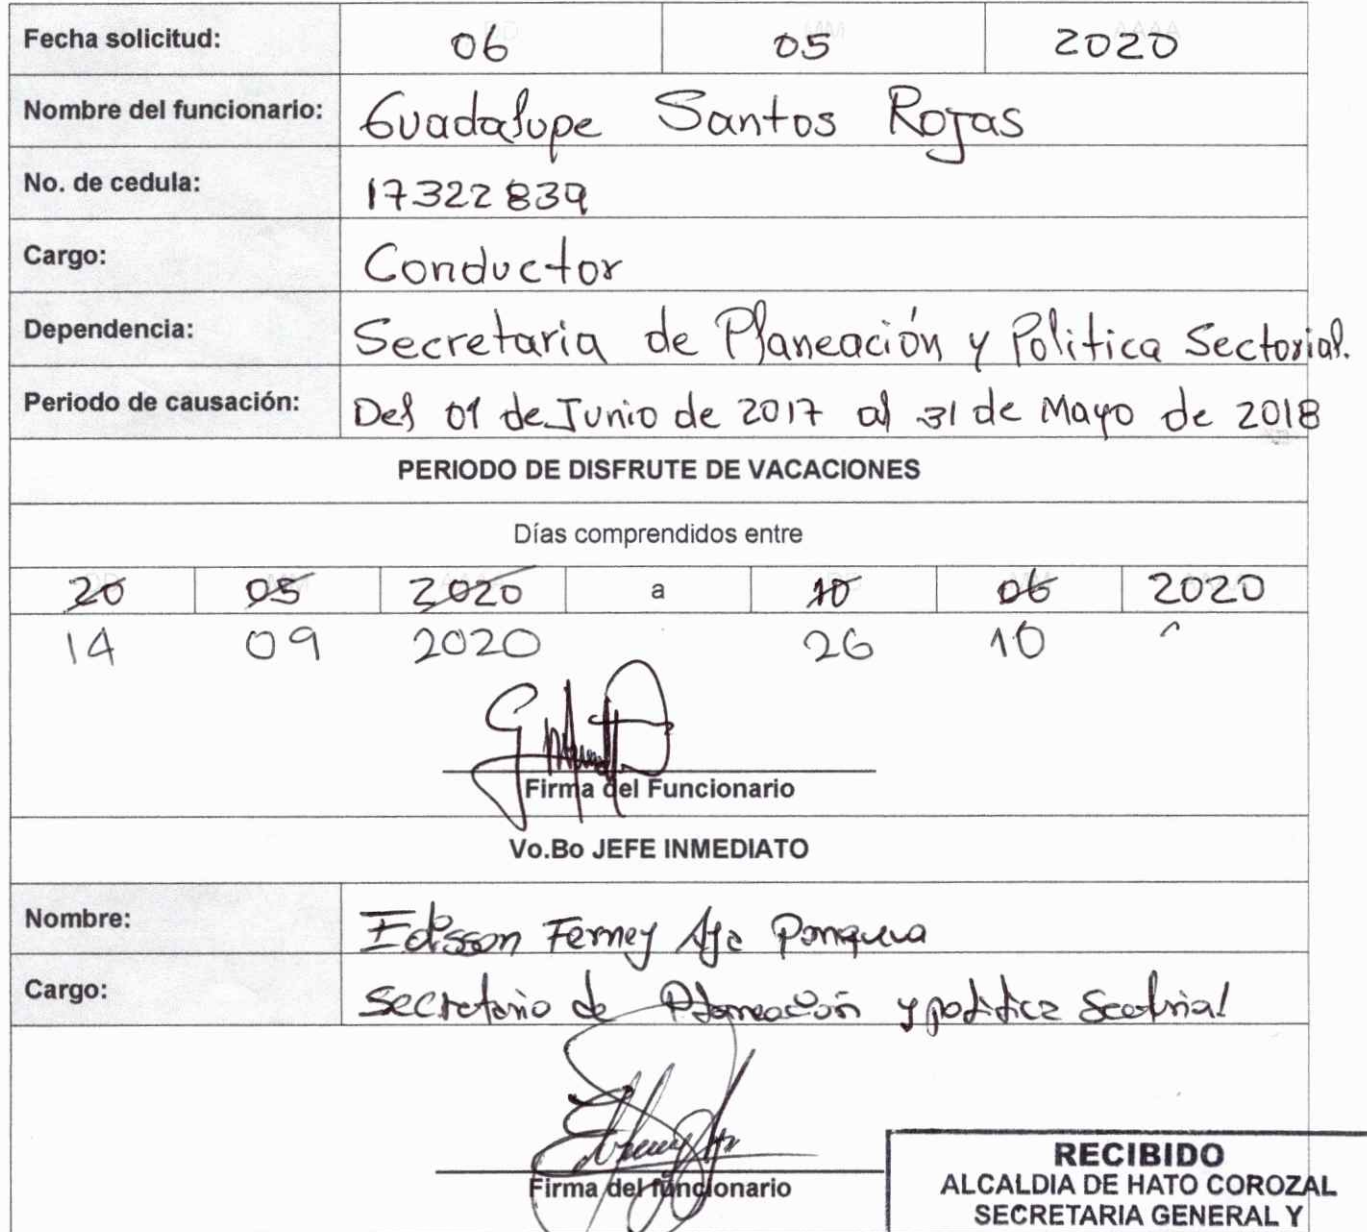 Fecha solicitud: 06 05 2020
Nombre del funcionario: Guadalupe Santos Rojas
No. de cedula: 17322839
Cargo: Conductor
Dependencia: Secretaria de Planeación y Politica Sectorial.
Periodo de causación: Del 01 de Junio de 2017 al 31 de Mayo de 2018
PERIODO DE DISFRUTE DE VACACIONES
Días comprendidos entre
20 05 2020 a 10 06 2020
14 09 2020 26 10
Firma del Funcionario
Vo.Bo JEFE INMEDIATO
Nombre: Edisson Ferney
Cargo: Secretario de Planeación y politica Sectorial
Firma del funcionario
RECIBIDO
ALCALDIA DE HATO COROZAL
SECRETARIA GENERAL Y